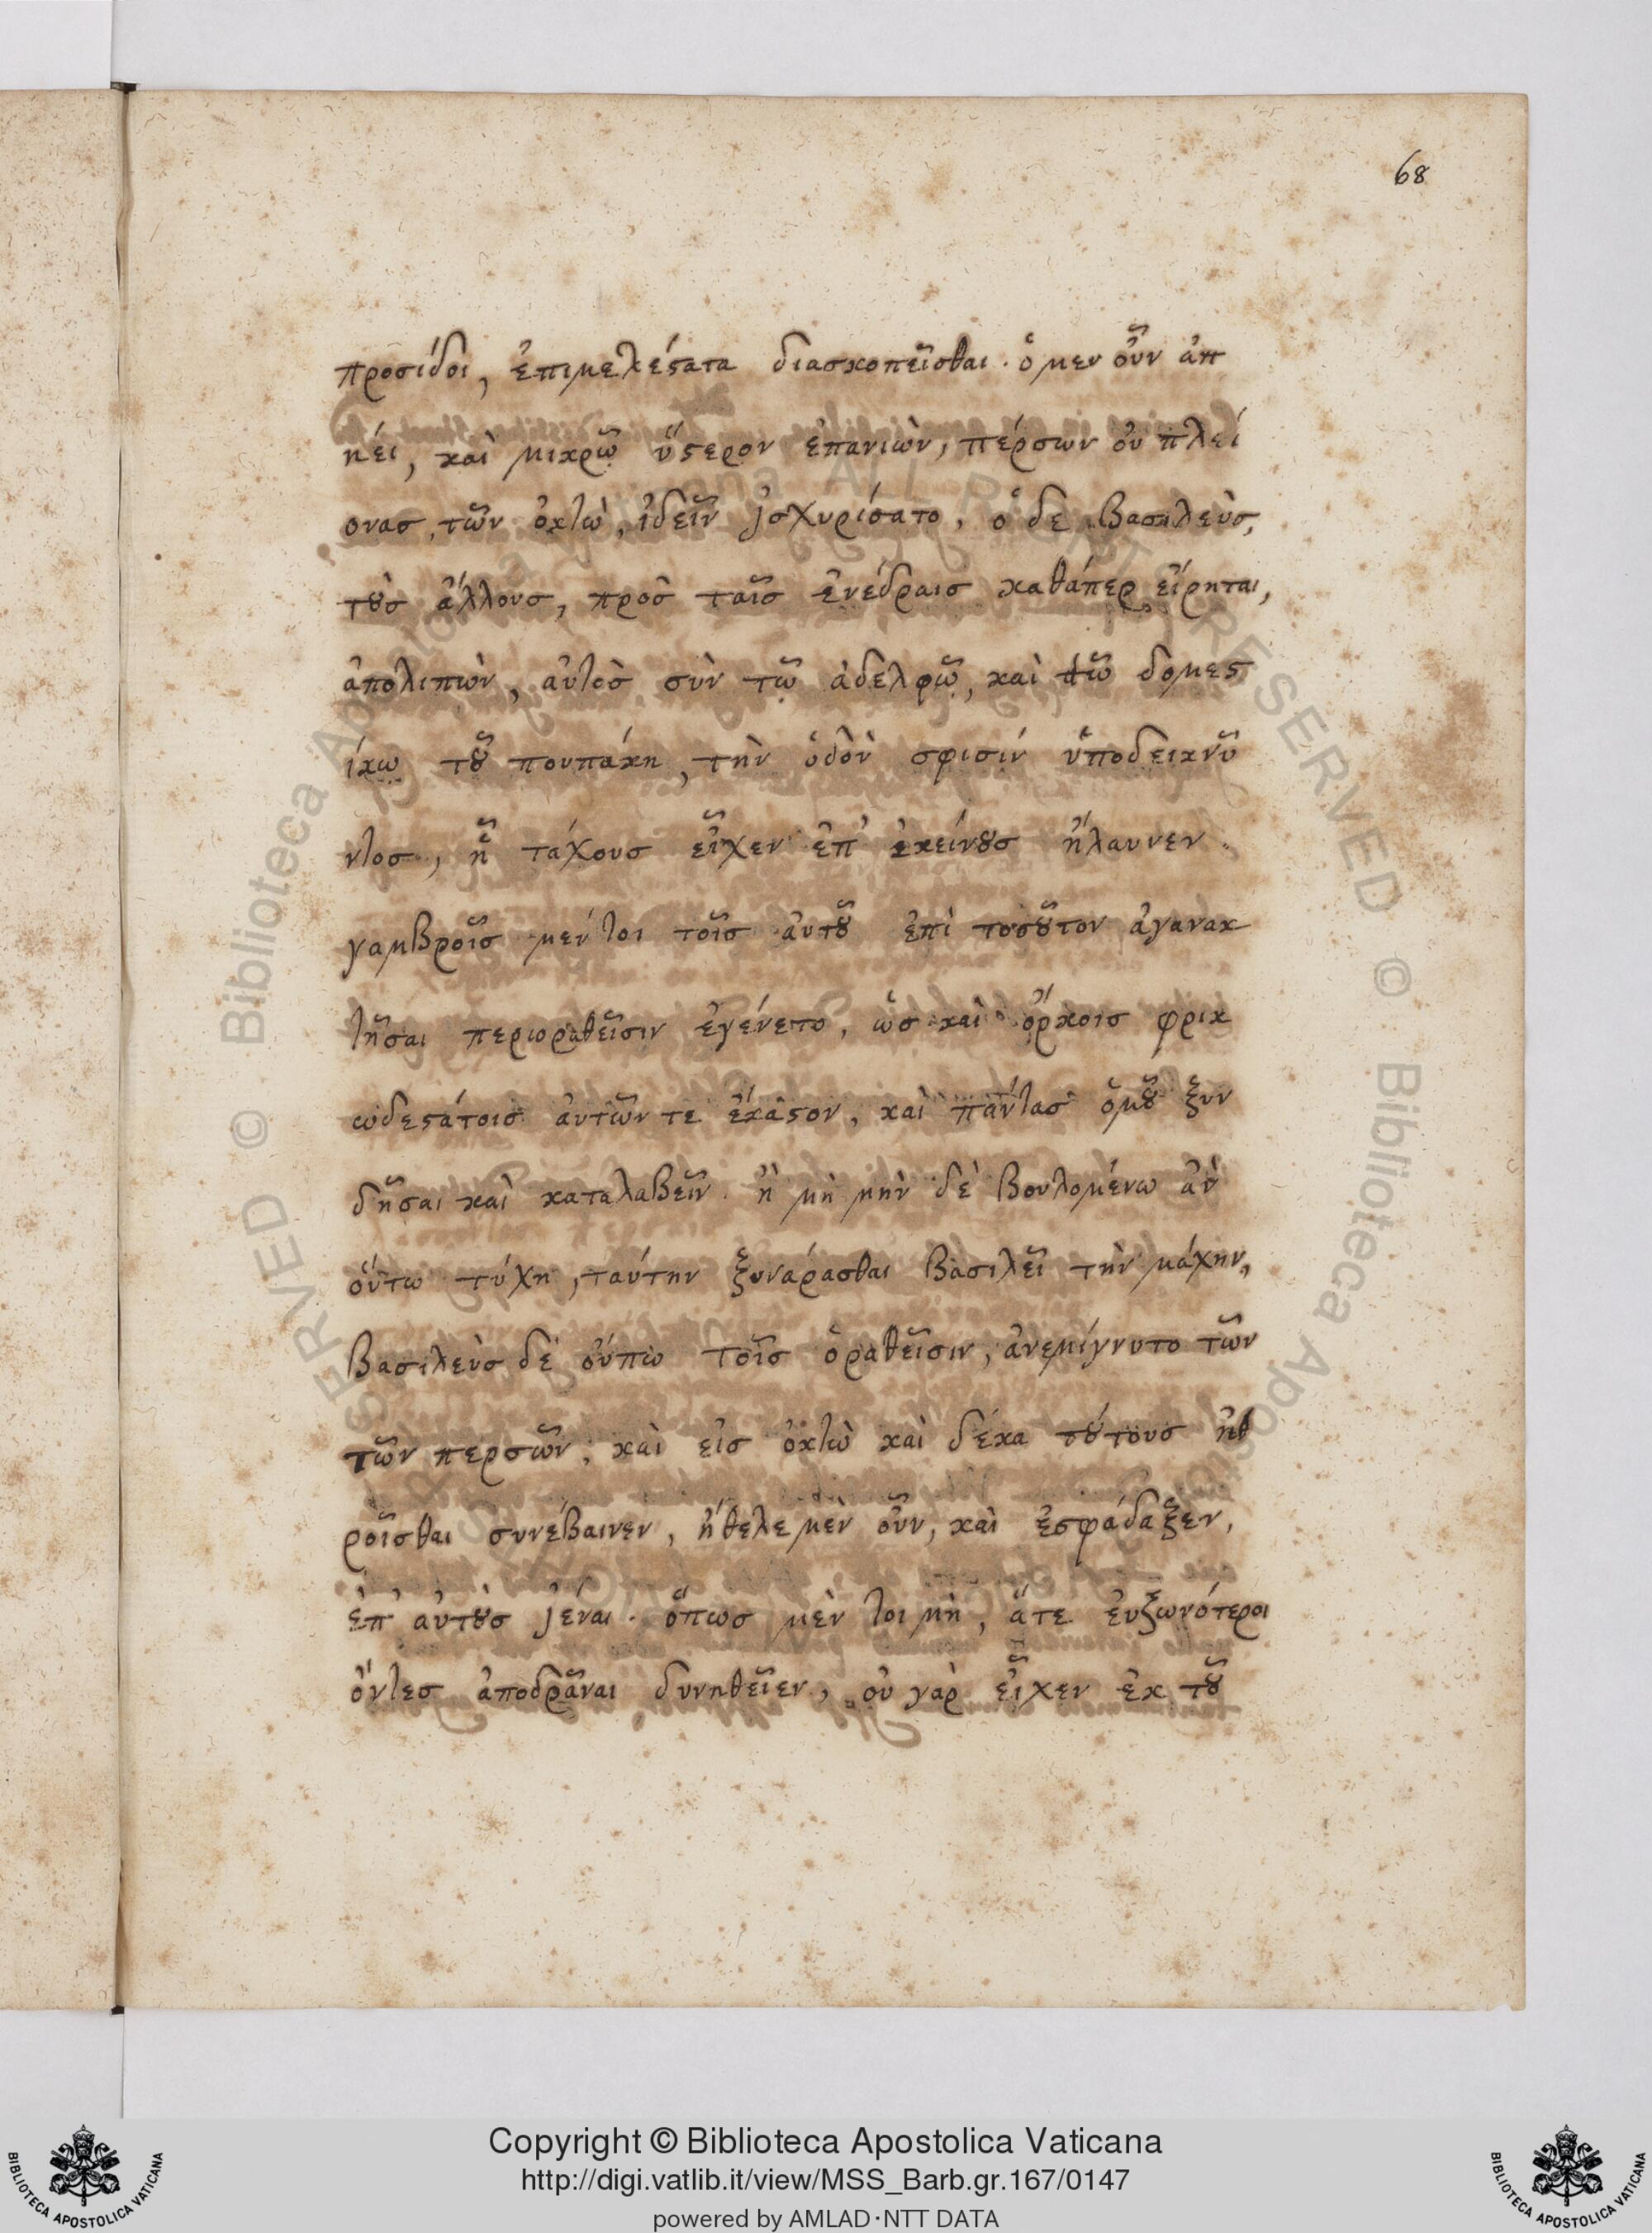 68
προσίδοι, ἐπιμελέϛατα διασκοπεῖσθαι. ὁ μεν οὖν ἀπ
ῄει, καὶ μικρῶ ὕϛερον ἐπανιὼν, πέρσων οὐ πλεί
ονασ τῶν ὀκτὼ, ἰδεῖν ἰσχυρίσατο, ὁ δε βασιλεὺσ,
τȣ̀σ ἄλλουσ, πρὸσ ταῖσ ἐνέδραισ καθάπερ εἴρηται,
ἀπολιπὼν, αὐτὸσ σὺν τῶ ἀδελφῶ, καὶ τῶ δομεϛ
ίκω τȣ͂ πουπάκη, τὴν ὁδὸν σφισίν ὑποδεικνῦ
ντοσ, ἧ τάχουσ εἶχεν ἐπ' ἐκείνȣσ ἤλαυνεν.
γαμβροῖσ μέντοι τοῖσ ἀυτȣ͂ ἐπὶ τοσȣ͂τον ἀγανακ
τῆσαι περιοραθεῖσιν ἐγένετο, ὡσ καὶ ὅρκοισ φρικ
ωδεϛάτοισ ἀυτῶν τε ἕκαϛον, καὶ πάντασ ὁμȣ͂ ξυν
δῆσαι καὶ καταλαβεῖν. ἢ μὴ μὴν δὲ βουλομένω ἀν
οὕτω τύχη, ταύτην ξυνάρασθαι βασιλεῖ τὴν μάχην,
βασιλεὺσ δὲ οὔπω τοῖσ ὁραθεῖσιν, ἀνεμίγνυτο τῶν
τῶν περσῶν, καὶ εἰσ ὀκτὼ καὶ δέκα τȣ́τουσ ἠθ
ροῖσθαι συνέβαινεν, ἤθελε μὲν οὖν, καὶ ἐσφάδαξεν,
ἐπ' αὐτȣ̀σ ἰέναι. ὅπωσ μὲν τοι μὴ, ἅτε ἐυξωνότεροι
ὄντεσ ἀποδρᾶναι δυνηθεῖεν, οὐ γὰρ εἶχεν ἐκ τȣ͂
© Biblioteca Apostolica Vaticana ALL RIGHTS RESERVED
Copyright © Biblioteca Apostolica Vaticana
http://digi.vatlib.it/view/MSS_Barb.gr.167/0147
powered by AMLAD·NTT DATA
BIBLIOTECA APOSTOLICA VATICANA
BIBLIOTECA APOSTOLICA VATICANA